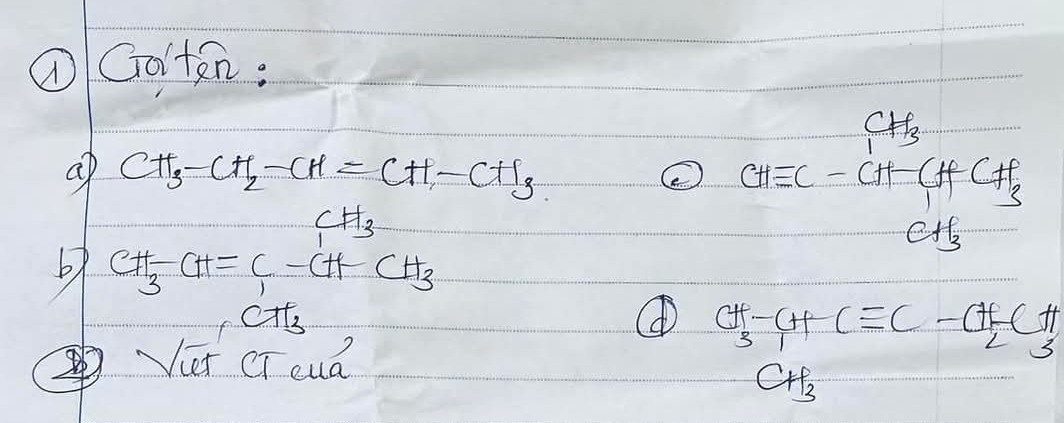 ① Gọi tên :
a) CH₃-CH₂-CH=CH-CH₃.
CH₃
b) CH₃-CH=C-CH-CH₃
CH₃
CH₃
c) CH≡C-CH-CH-CH₃
CH₃
d) CH₃-CH-C≡C-CH₂-CH₃
CH₃
② Viết CT của